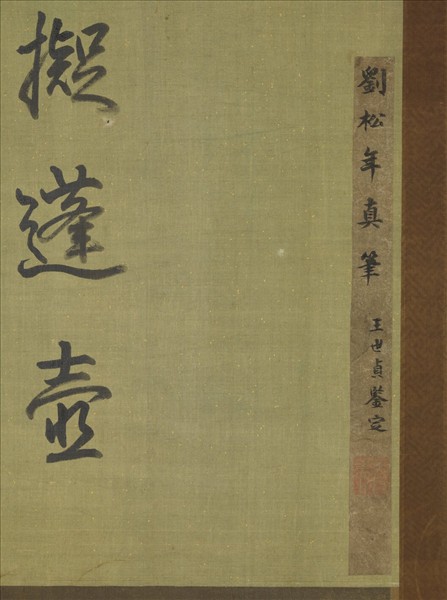 劉松年真筆 王世貞鑒定
擬蓬壺